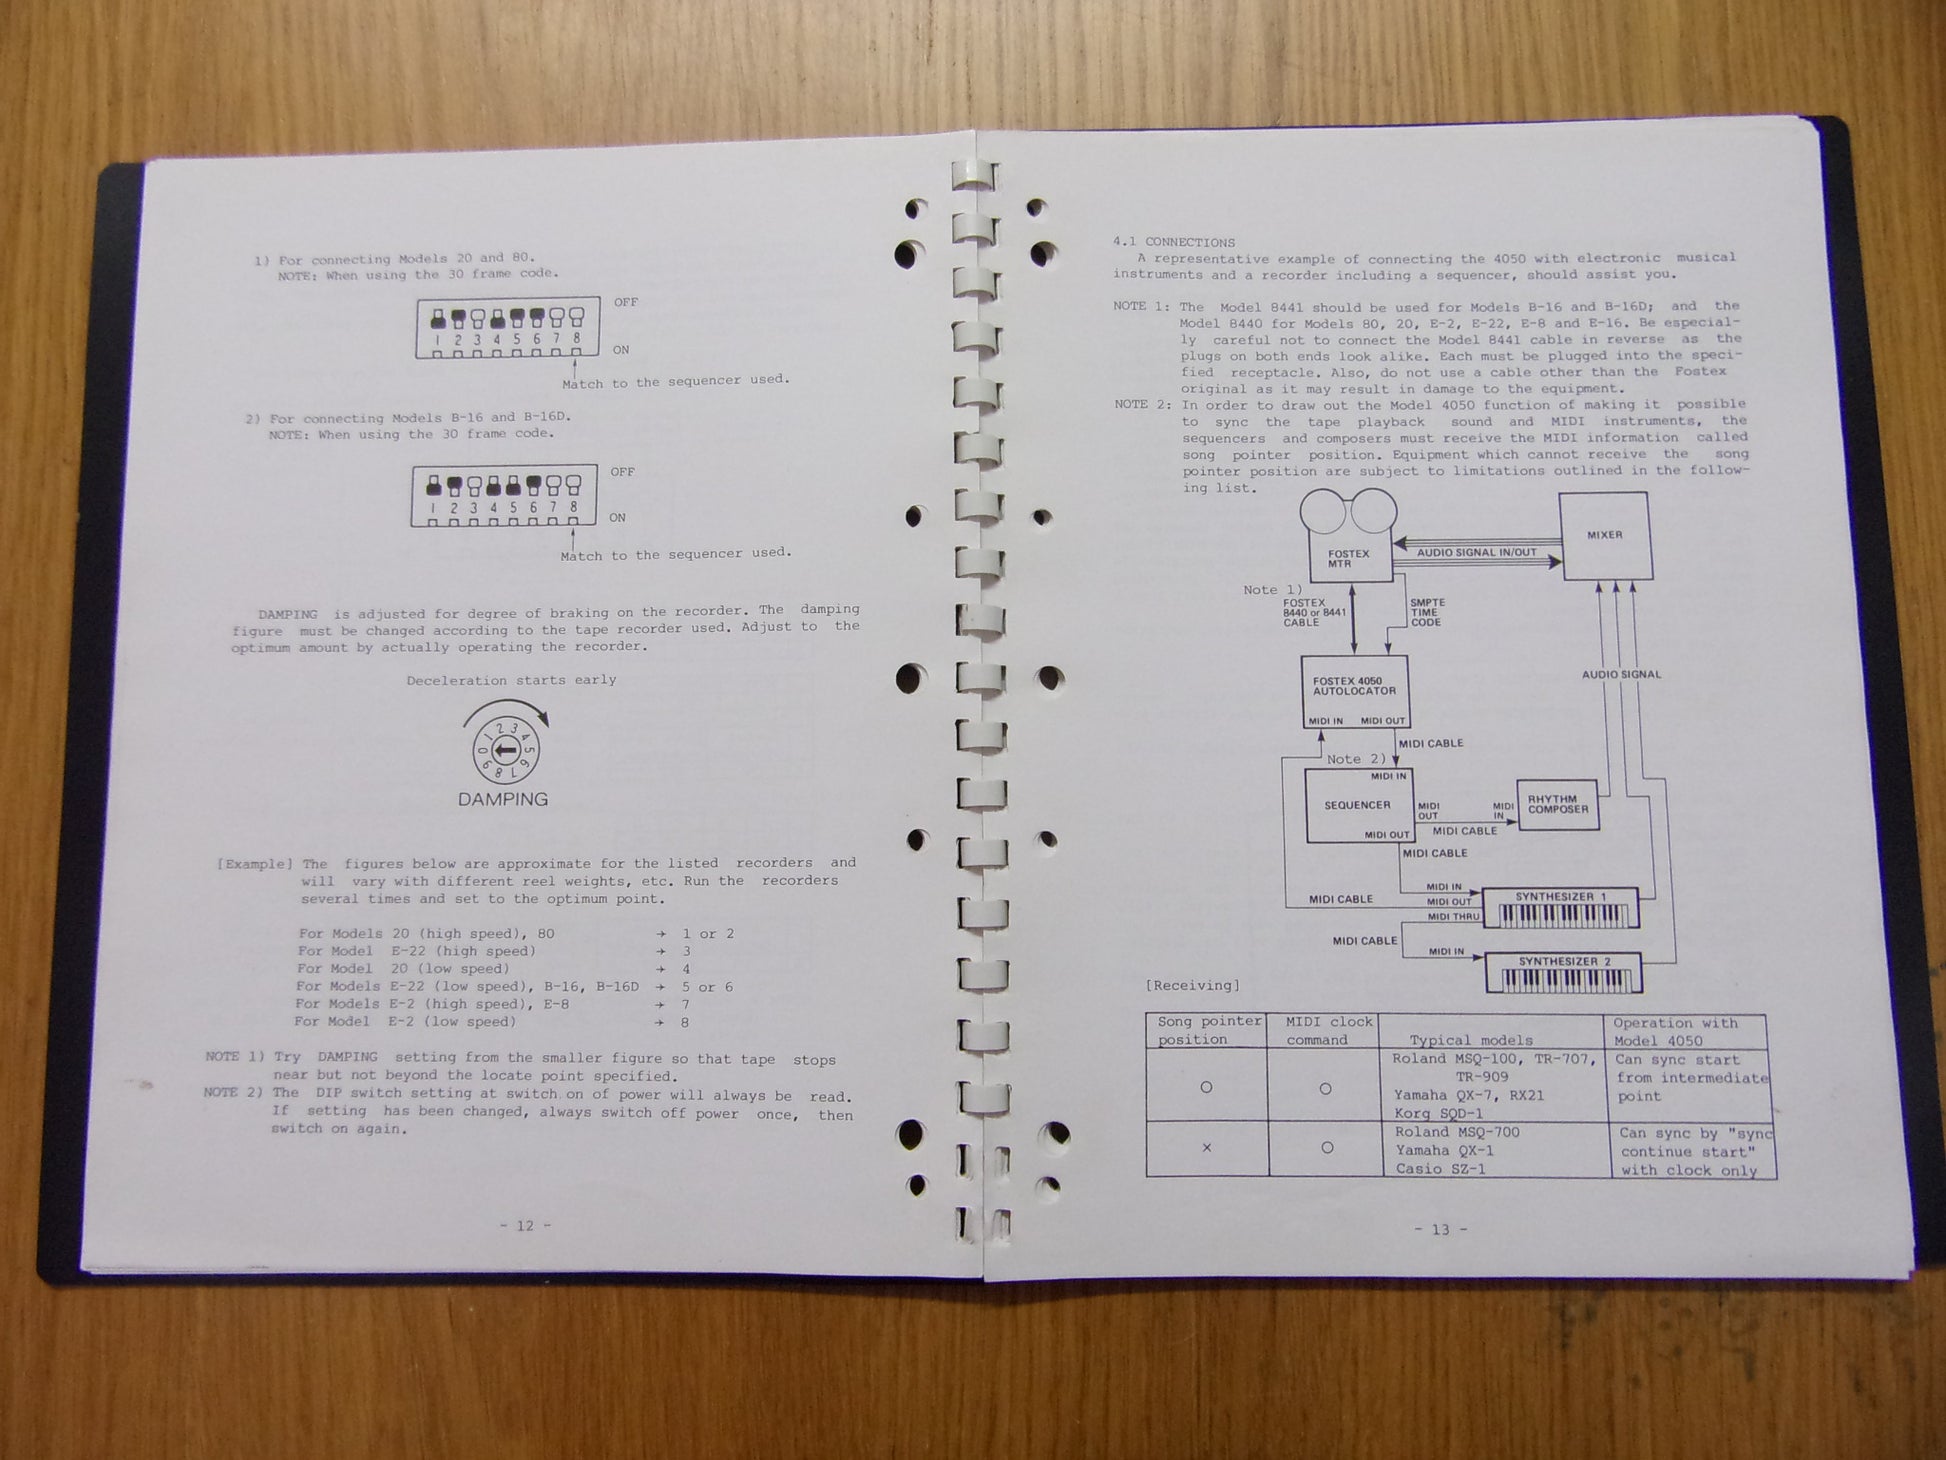 1) For connecting Models 20 and 80.
NOTE: When using the 30 frame code.
OFF
1 2 3 4 5 6 7 8
ON
Match to the sequencer used.
2) For connecting Models B-16 and B-16D.
NOTE: When using the 30 frame code.
OFF
1 2 3 4 5 6 7 8
ON
Match to the sequencer used.
DAMPING is adjusted for degree of braking on the recorder. The damping
figure must be changed according to the tape recorder used. Adjust to the
optimum amount by actually operating the recorder.
Deceleration starts early
0 1 2 3 4 5 6 7 8 9
DAMPING
[Example] The figures below are approximate for the listed recorders and
will vary with different reel weights, etc. Run the recorders
several times and set to the optimum point.
For Models 20 (high speed), 80 → 1 or 2
For Model E-22 (high speed) → 3
For Model 20 (low speed) → 4
For Models E-22 (low speed), B-16, B-16D → 5 or 6
For Models E-2 (high speed), E-8 → 7
For Model E-2 (low speed) → 8
NOTE 1) Try DAMPING setting from the smaller figure so that tape stops
near but not beyond the locate point specified.
NOTE 2) The DIP switch setting at switch on of power will always be read.
If setting has been changed, always switch off power once, then
switch on again.
- 12 -
4.1 CONNECTIONS
A representative example of connecting the 4050 with electronic musical
instruments and a recorder including a sequencer, should assist you.
NOTE 1: The Model 8441 should be used for Models B-16 and B-16D; and the
Model 8440 for Models 80, 20, E-2, E-22, E-8 and E-16. Be especial-
ly careful not to connect the Model 8441 cable in reverse as the
plugs on both ends look alike. Each must be plugged into the speci-
fied receptacle. Also, do not use a cable other than the Fostex
original as it may result in damage to the equipment.
NOTE 2: In order to draw out the Model 4050 function of making it possible
to sync the tape playback sound and MIDI instruments, the
sequencers and composers must receive the MIDI information called
song pointer position. Equipment which cannot receive the song
pointer position are subject to limitations outlined in the follow-
ing list.
FOSTEX
MTR
AUDIO SIGNAL IN/OUT
MIXER
Note 1)
FOSTEX
8440 or 8441
CABLE
SMPTE
TIME
CODE
FOSTEX 4050
AUTOLOCATOR
MIDI IN MIDI OUT
AUDIO SIGNAL
MIDI CABLE
Note 2)
MIDI IN
SEQUENCER
MIDI OUT
MIDI
OUT
MIDI
IN
MIDI CABLE
RHYTHM
COMPOSER
MIDI CABLE
MIDI IN
MIDI OUT
MIDI THRU
MIDI CABLE
SYNTHESIZER 1
MIDI CABLE
MIDI IN
SYNTHESIZER 2
[Receiving]
Song pointer
position
MIDI clock
command
Typical models
Operation with
Model 4050
○
○
Roland MSQ-100, TR-707,
TR-909
Yamaha QX-7, RX21
Korg SQD-1
Can sync start
from intermediate
point
×
○
Roland MSQ-700
Yamaha QX-1
Casio SZ-1
Can sync by "sync
continue start"
with clock only
- 13 -